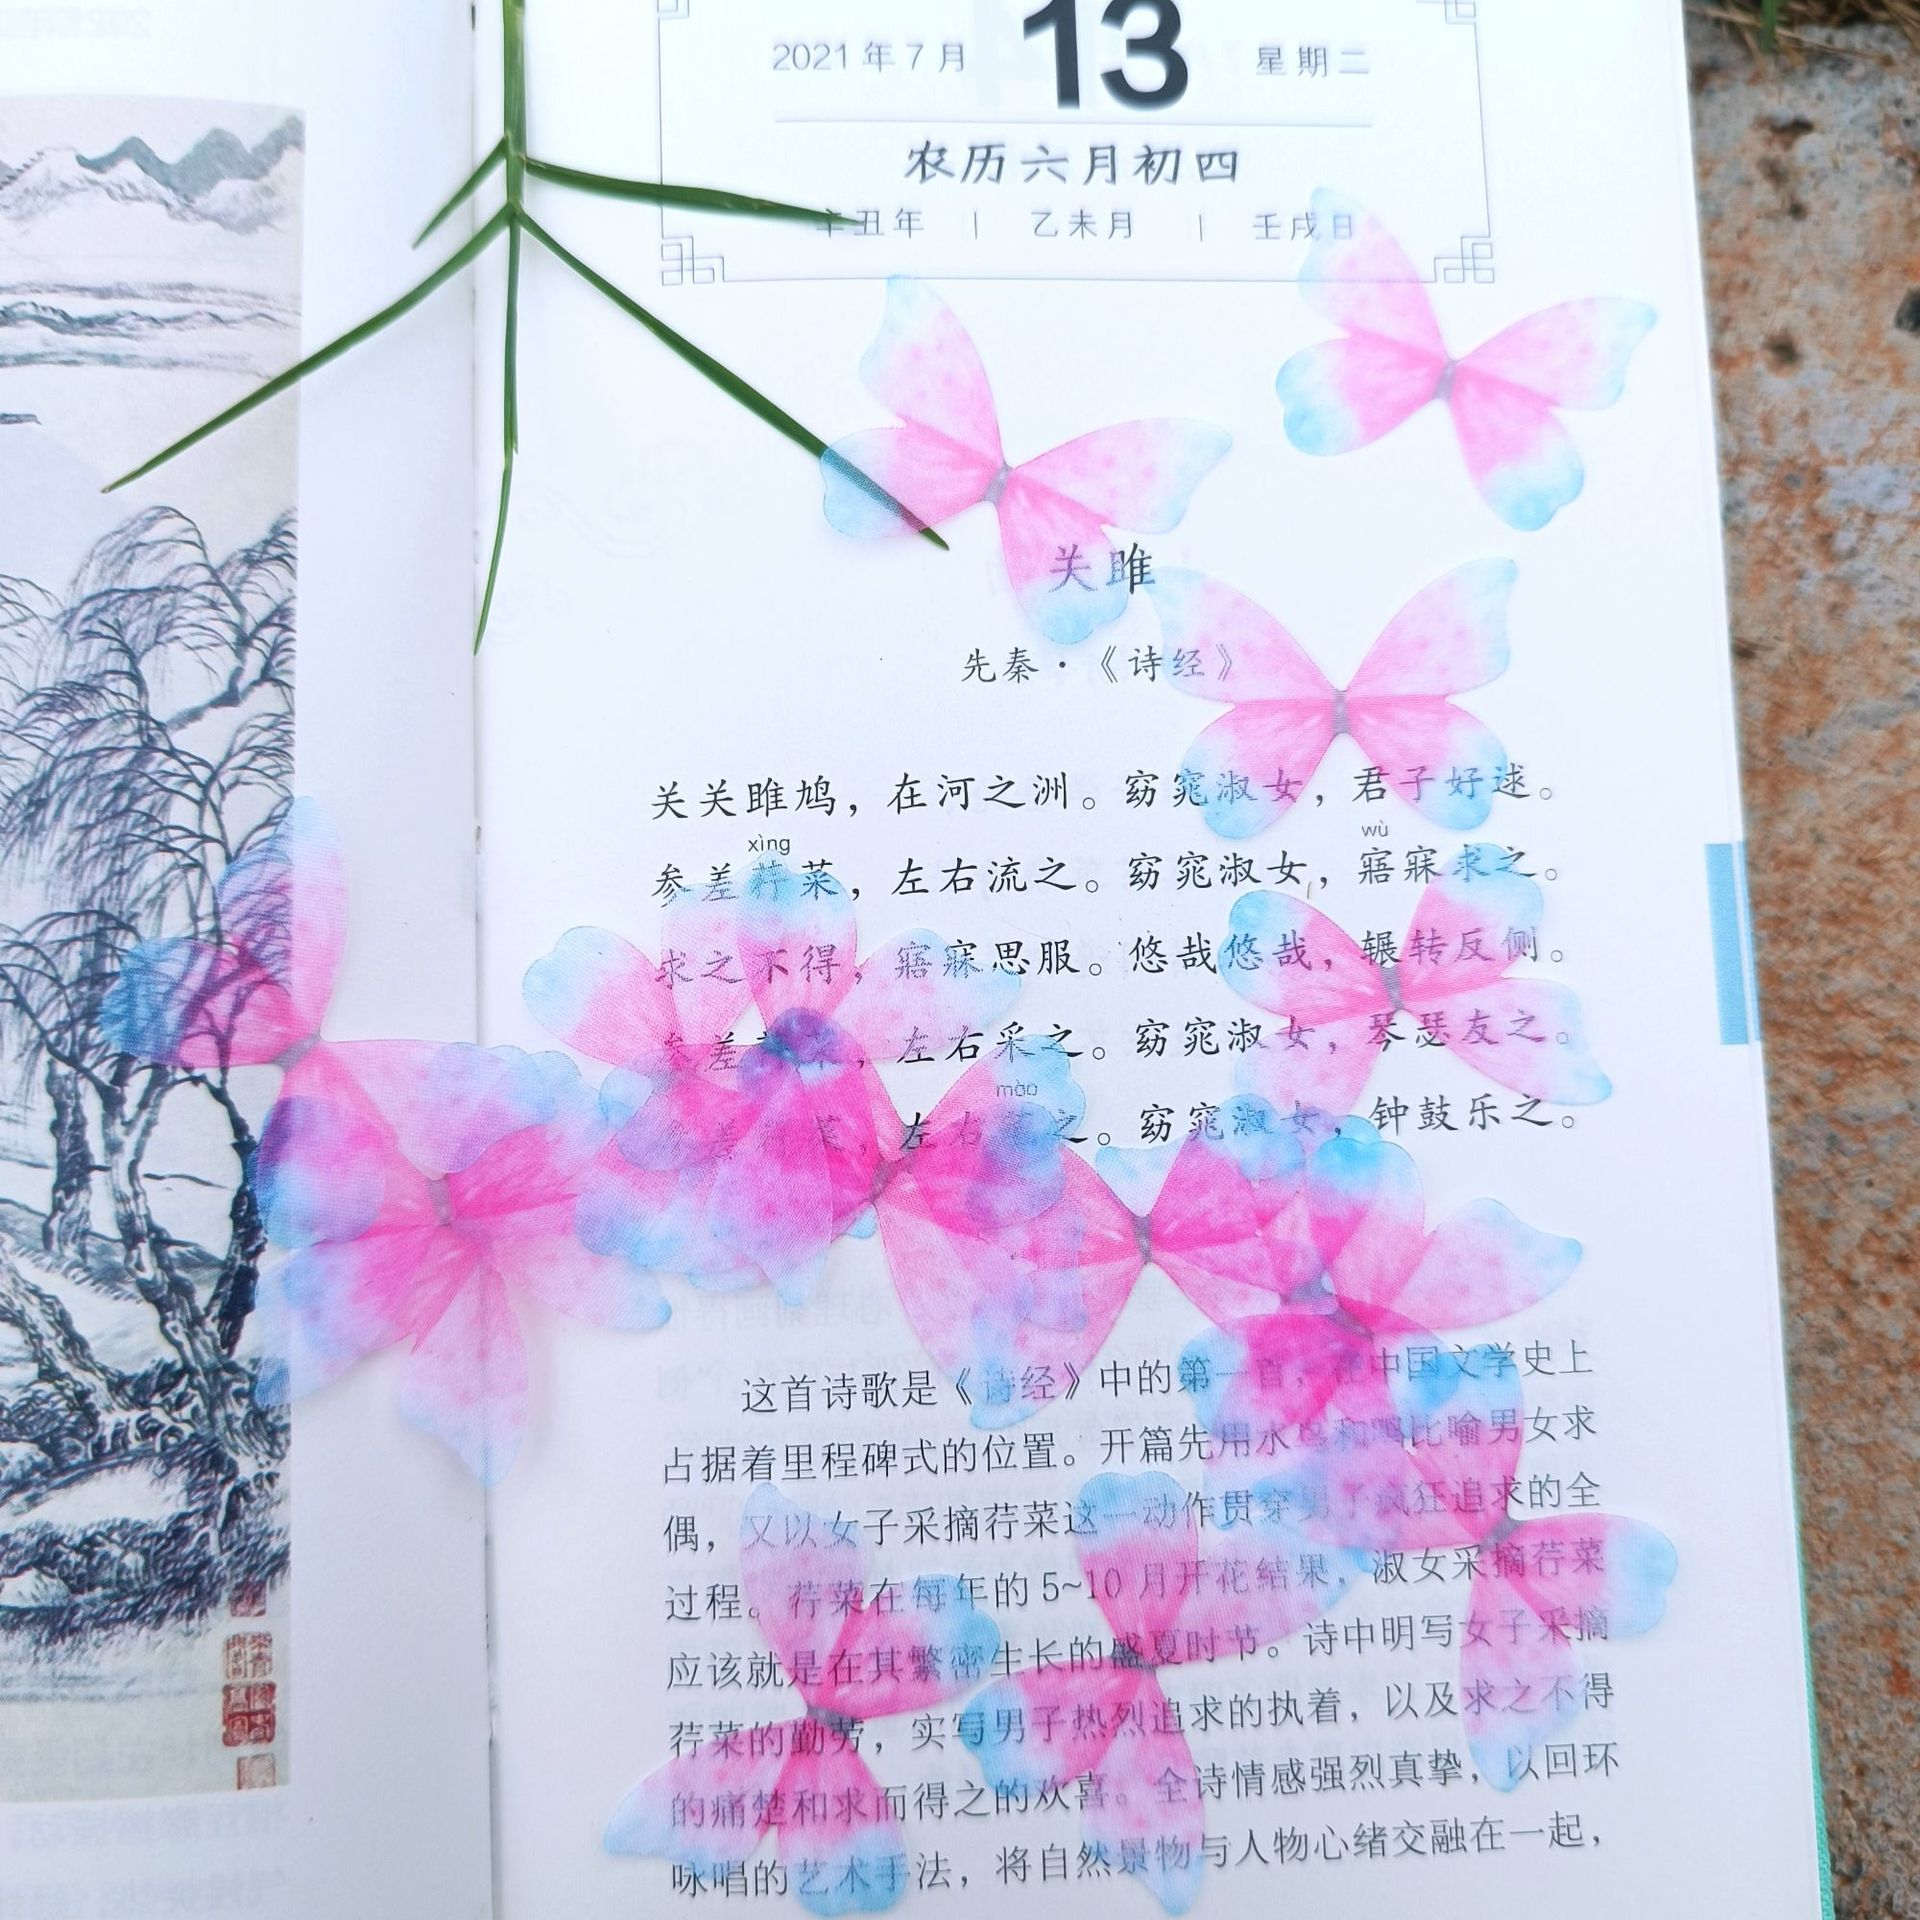 2021年7月 13 星期二
农历六月初四
辛丑年 | 乙未月 | 壬戌日
关雎
先秦·《诗经》
关关雎鸠，在河之洲。窈窕淑女，君子好逑。
xìng wù
参差荇菜，左右流之。窈窕淑女，寤寐求之。
求之不得，寤寐思服。悠哉悠哉，辗转反侧。
参差荇菜，左右采之。窈窕淑女，琴瑟友之。
mào
参差荇菜，左右芼之。窈窕淑女，钟鼓乐之。
这首诗歌是《诗经》中的第一首，在中国文学史上
占据着里程碑式的位置。开篇先用水鸟和鸣比喻男女求
偶，又以女子采摘荇菜这一动作贯穿男子疯狂追求的全
过程。荇菜在每年的5~10月开花结果，淑女采摘荇菜
应该就是在其繁密生长的盛夏时节。诗中明写女子采摘
荇菜的勤劳，实写男子热烈追求的执着，以及求之不得
的痛楚和求而得之的欢喜。全诗情感强烈真挚，以回环
咏唱的艺术手法，将自然景物与人物心绪交融在一起，